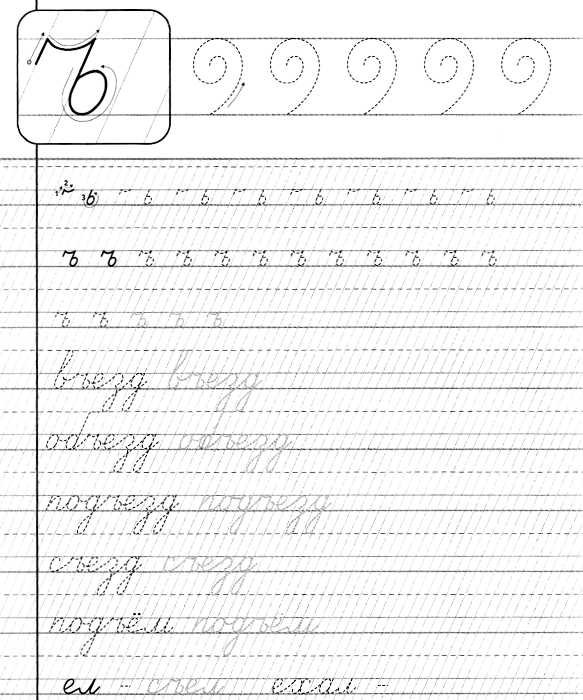 ъ
ъ ъ ъ ъ ъ ъ ъ ъ ъ ъ ъ ъ
ъ ъ ъ ъ ъ
въезд въезд
объезд объезд
подъезд подъезд
съезд съезд
подъём подъём
ел - съел ехал -